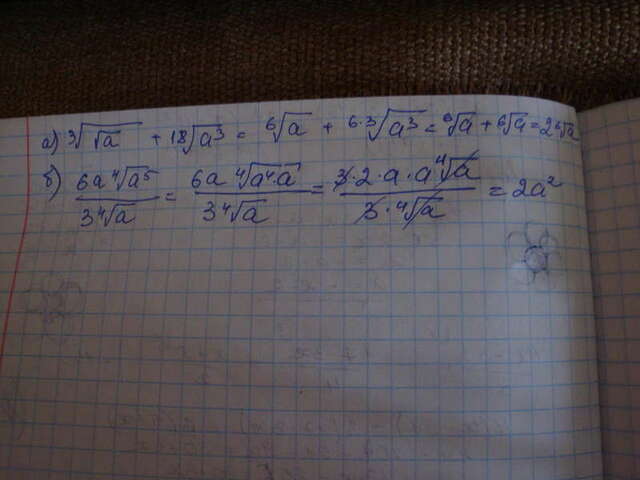 а) ∛√a + ¹⁸√a³ = ⁶√a + ⁶·³√a³ = ⁶√a + ⁶√a = 2⁶√a
б) 6a⁴√a⁵ / 3⁴√a = 6a ⁴√a⁴·a / 3⁴√a = 3·2·a·a⁴√a / 3·⁴√a = 2a²